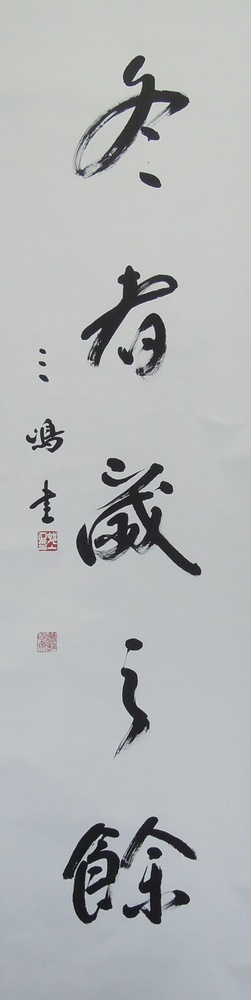 冬者歳之餘
三鳴書